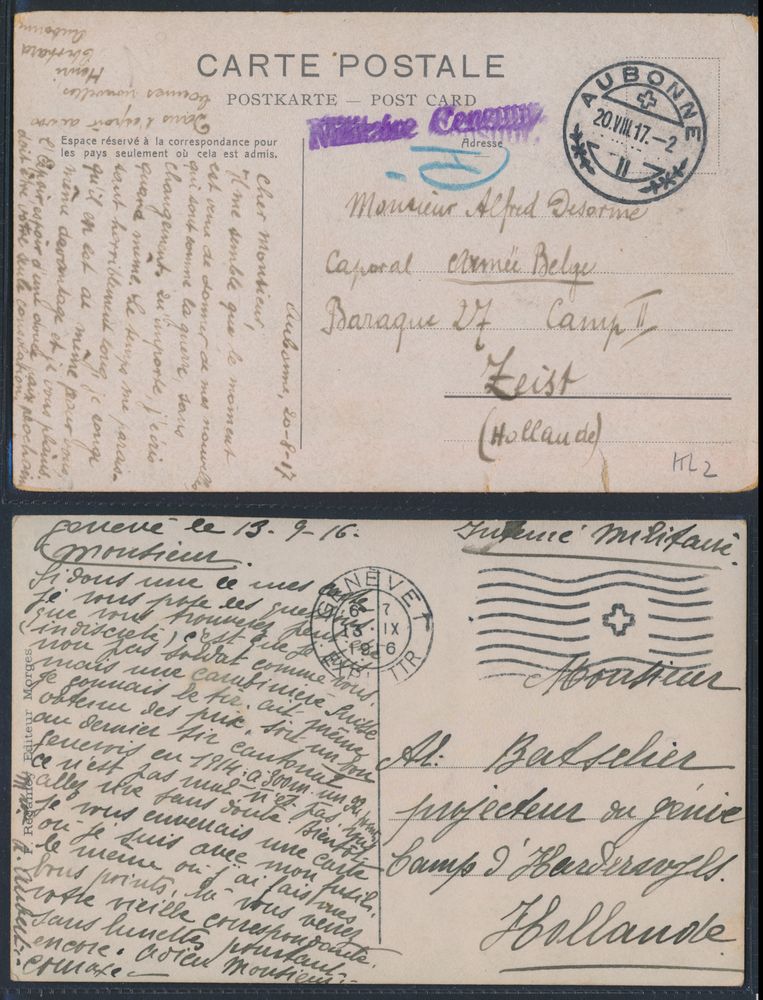 CARTE POSTALE
POSTKARTE — POST CARD
Militaire Censuur
Espace réservé à la correspondance pour
les pays seulement où cela est admis.
Adresse
AUBONNE
20.VIII.17.–2
II
Monsieur Alfred Desorme
Caporal Armée Belge
Baraque 27 Camp II
Zeist
(Hollande)
Aubonne, 20-8-17
Cher Monsieur,
Il me semble que le moment
est venu de donner de mes nouvelles
qui sont comme la guerre, sans
changement. Qu'importe, j'écris
quand même. Le temps me parais-
sait horriblement long, je songe
qu'il en est de même pour vous
même davantage et je vous plains.
L'espoir d'une paix prochain
doit être votre seule consolation,
Dans l'espoir de vos
bonnes nouvelles,
Henri
Aubonne
Genève le 13-9-16.
Interné Militaire.
Monsieur.
Si dans une de mes
je vous pose des questions
que vous trouverez peut
indiscrète, c'est que je
non pas soldat comme vous.
mais une carabinière suisse
je connais le tir, ait même
obtenu des prix. soit un bon
au dernier tir cantonal
Genevois en 1914. à 300 m.
ce n'est pas mal n'est pas,
allez rire sans doute. Bientôt
je vous enverrais une carte
ou je suis avec mon fusil.
le même ou j'ai fais mes
bons points. là vous verrez
votre vieille correspondante.
sans lunettes pourtant
encore. adieu Monsieur.
GENÈVE 1
13 IX
EXP. LETTR
Monsieur
Al. Batselier
projecteur du génie
Camp d'Harderwyk.
Hollande
Editeur Morges.